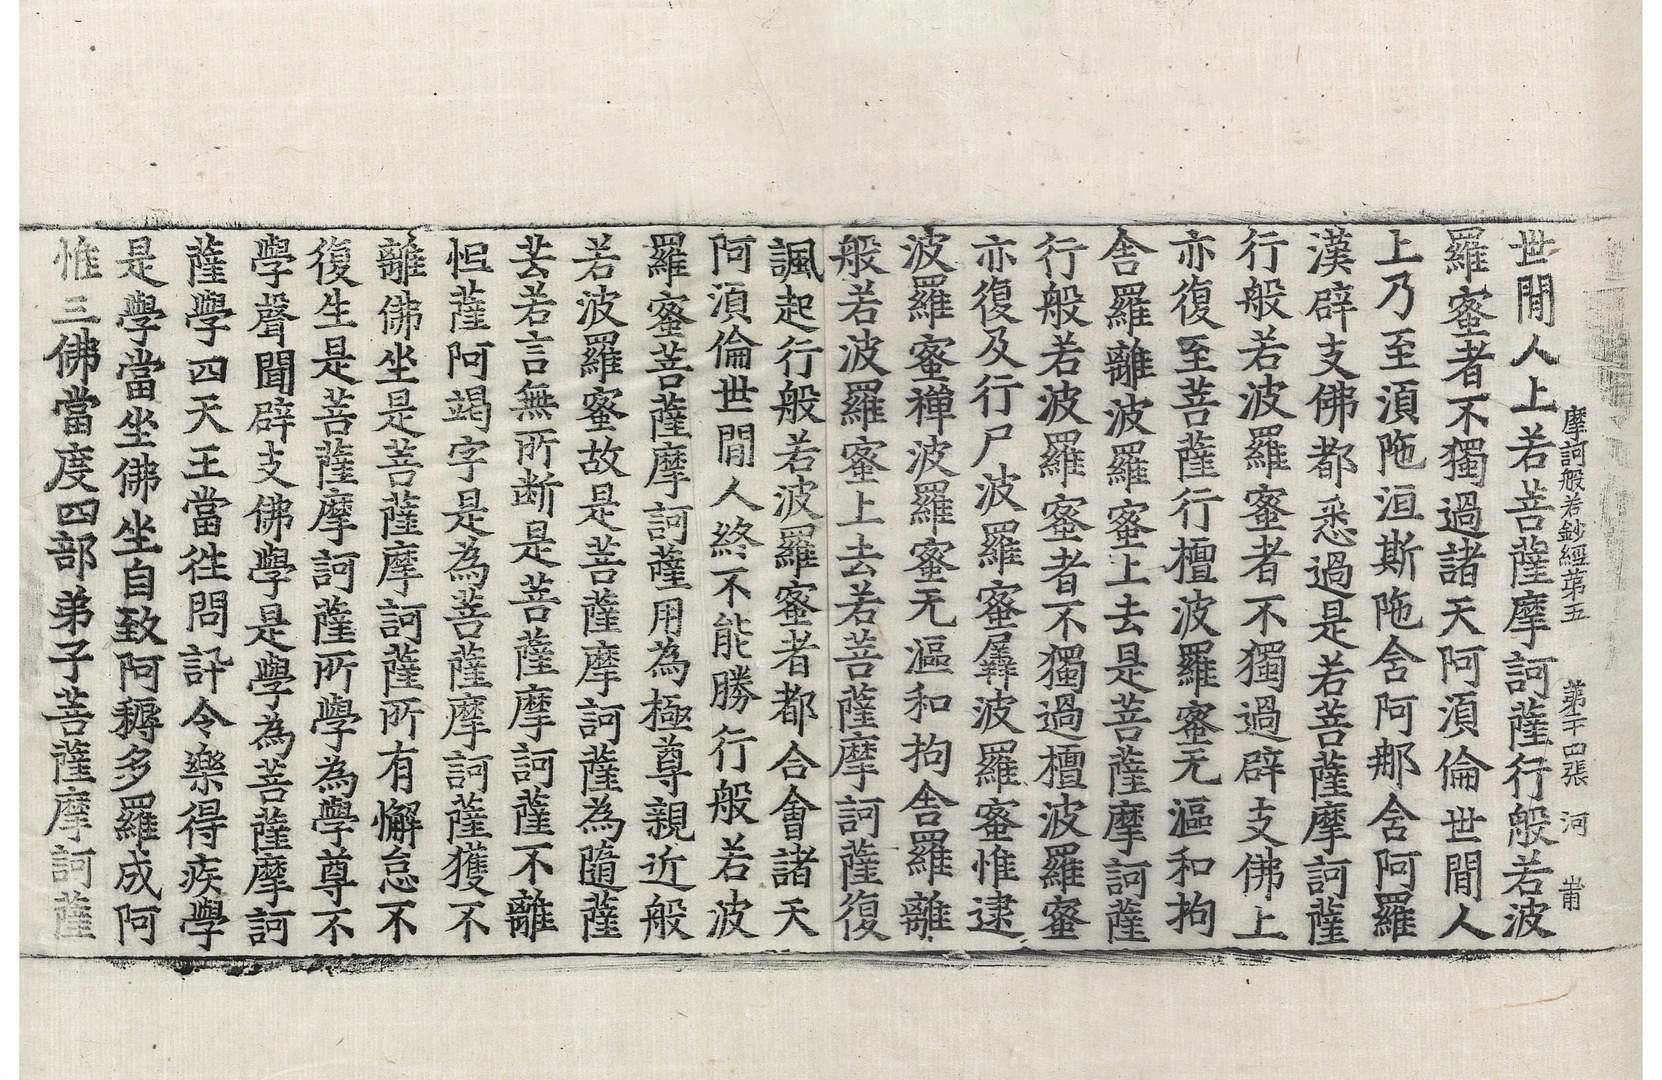 摩訶般若鈔經苐五　苐二十四張　河　莆
世閒人上若菩薩摩訶薩行般若波
羅蜜者不獨過諸天阿湏倫世閒人
上乃至湏陁洹斯陁含阿那含阿羅
漢辟支佛都悉過是若菩薩摩訶薩
行般若波羅蜜者不獨過辟支佛上
亦復至菩薩行檀波羅蜜无漚和拘
舍羅離波羅蜜上去是菩薩摩訶薩
行般若波羅蜜者不獨過檀波羅蜜
亦復及行尸波羅蜜羼波羅蜜惟逮
波羅蜜禪波羅蜜无漚和拘舍羅離
般若波羅蜜上去若菩薩摩訶薩復
諷起行般若波羅蜜者都合會諸天
阿湏倫世閒人終不能勝行般若波
羅蜜菩薩摩訶薩用為極尊親近般
若波羅蜜故是菩薩摩訶薩為隨薩
芸若言無所断是菩薩摩訶薩不離
怛薩阿竭字是為菩薩摩訶薩獲不
離佛坐是菩薩摩訶薩所有懈怠不
復生是菩薩摩訶薩所學為學尊不
學聲聞辟支佛學是學為菩薩摩訶
薩學四天王當徃問訊令樂得疾學
是學當坐佛坐自致阿耨多羅成阿
惟三佛當度四部弟子菩薩摩訶薩